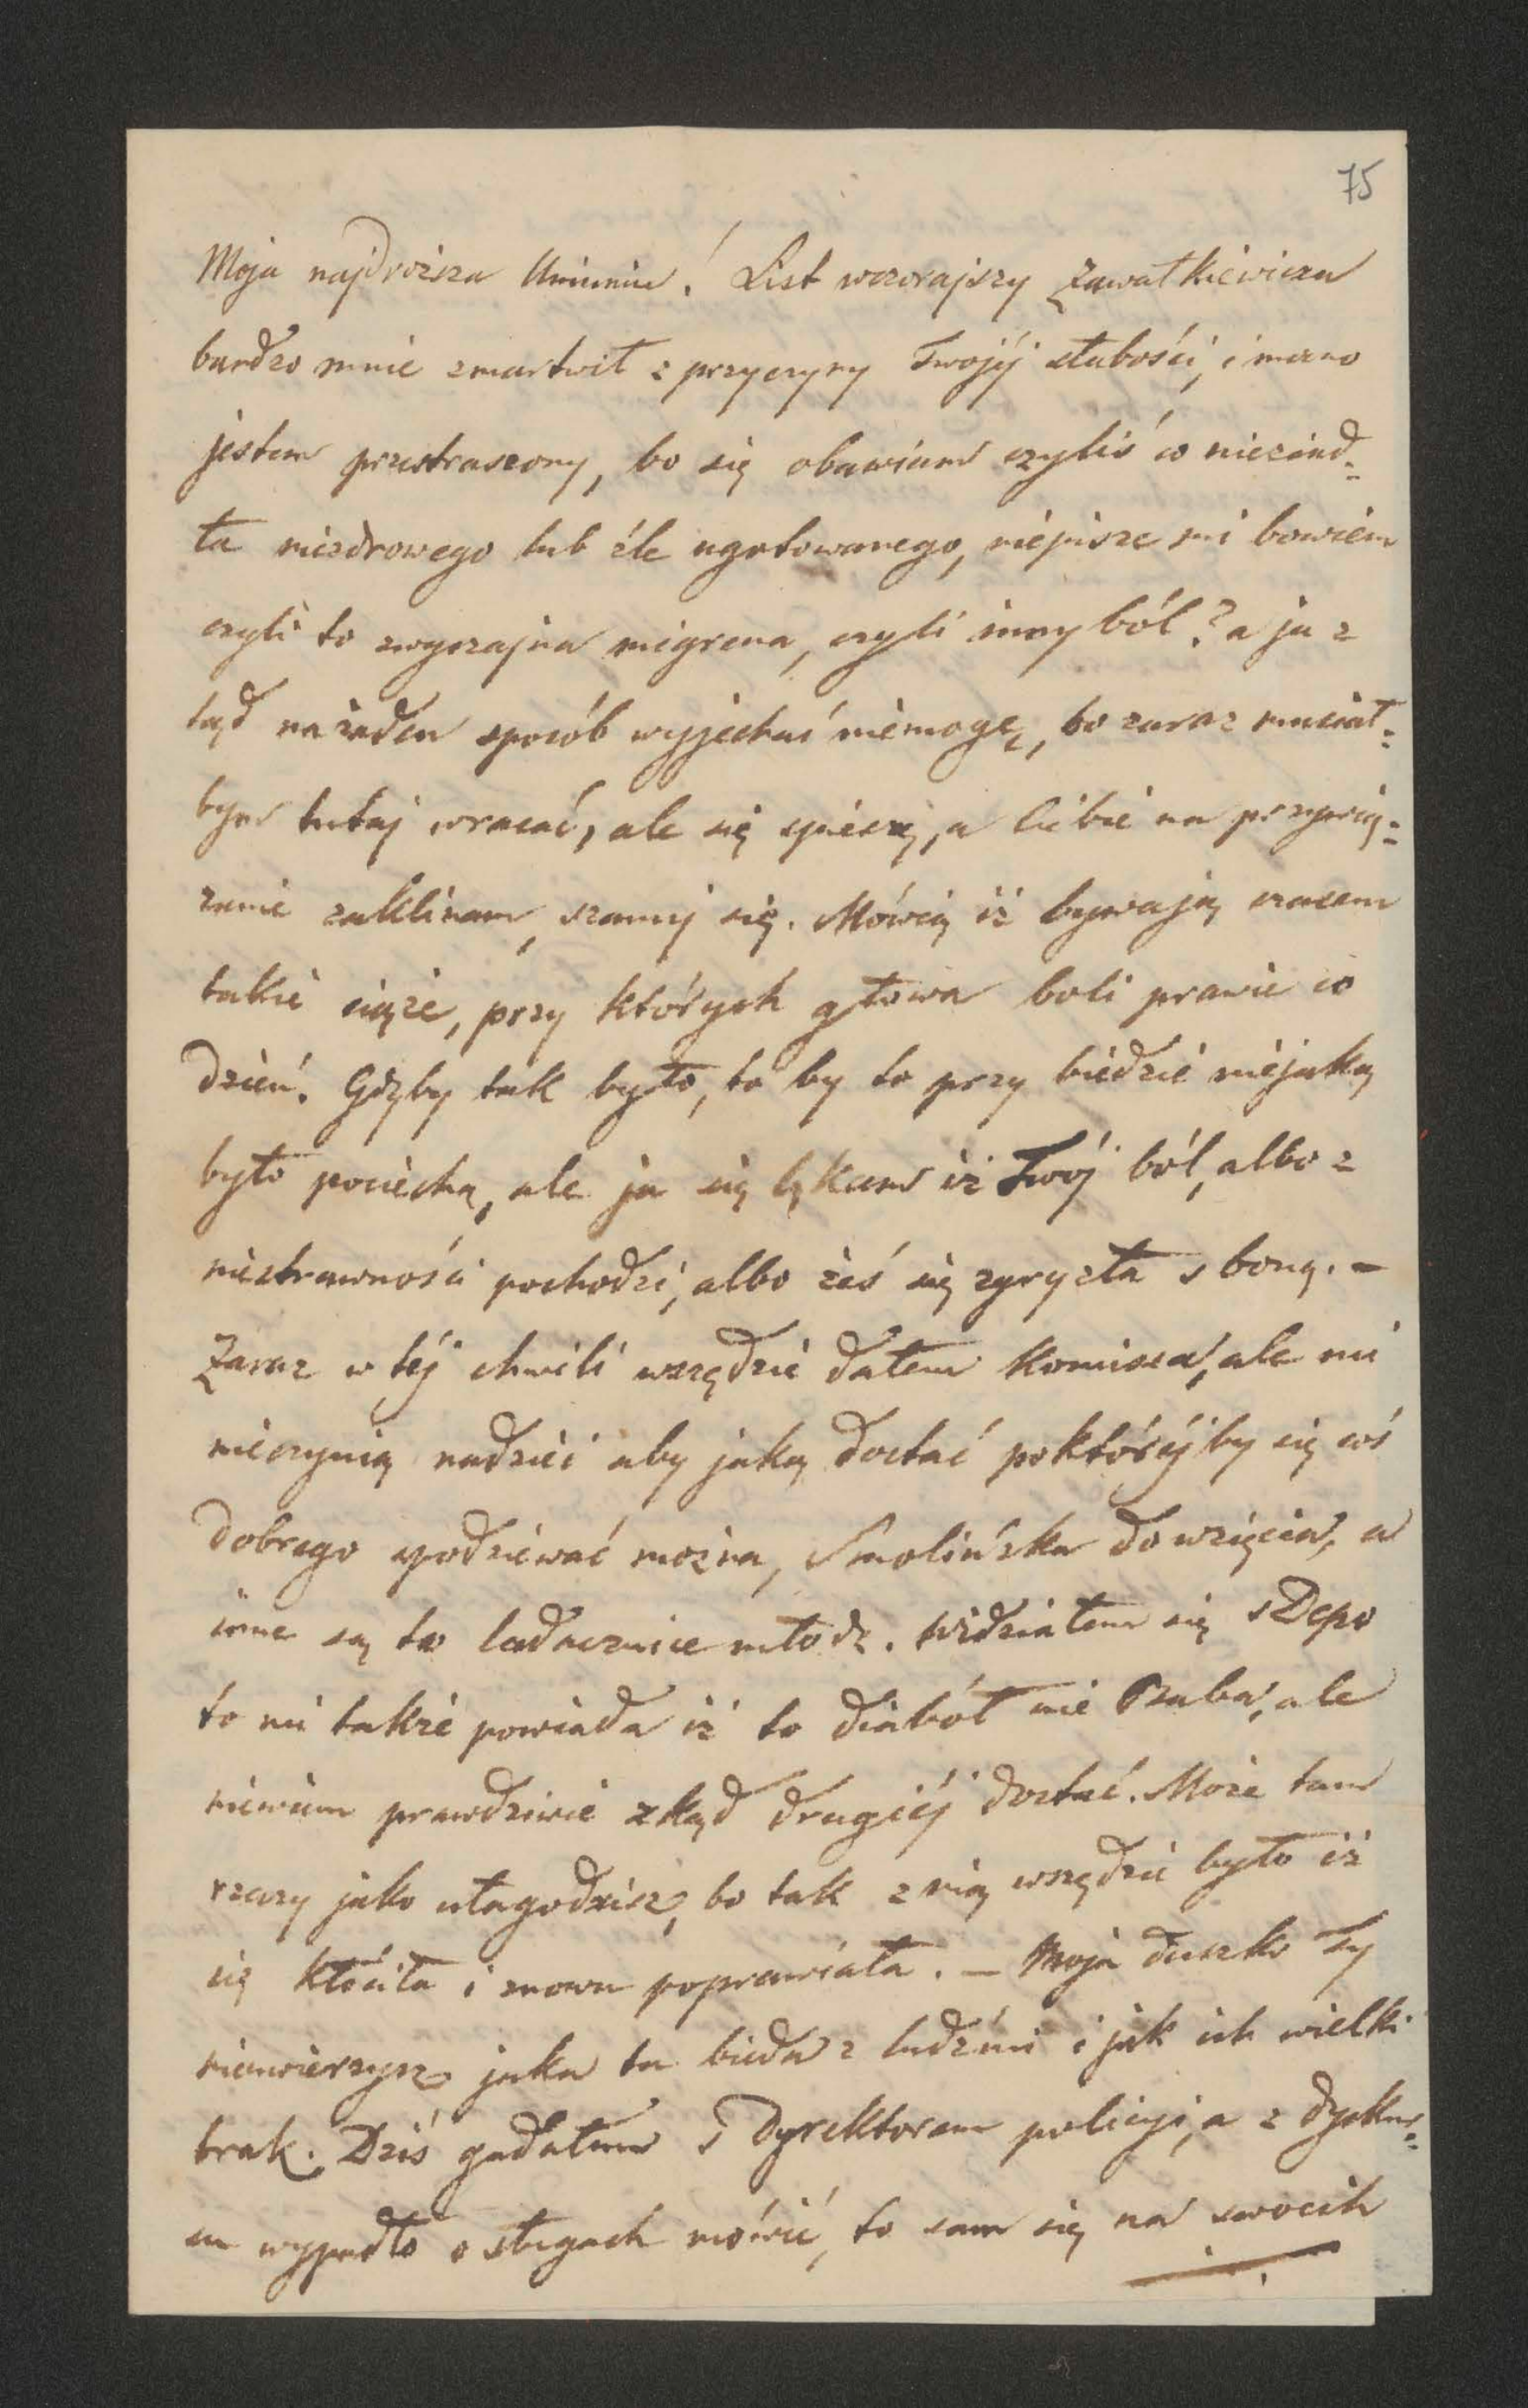 75
Moja najdroższa Uniuniu! List wczorajszy Zawałkiewicza
bardzo mnie zmartwił z przyczyny Twojéj słabości, i mocno
jestem przestraszony, bo się obawiam czyliś co niezjad-
ła niezdrowego lub źle ugotowanego, niepisze mi bowiem
czyli to zwyczajna migrena, czyli inny ból? a ja z
tąd na żaden sposób wyjechać niemogę, bo zaraz musiał-
bym tutaj wracać, ale się spieszę, a Ciebie na przywią-
zanie zaklinam, szanuj się. Mówią iż bywają czasem
takie ciąże, przy których głowa boli prawie co
dzień. Gdyby tak było, to by to przy biedzie niejaką
było pociechą, ale ja się lękam iż Twój ból, albo z
niestrawności pochodzi, albo żeś się zgryzła s boną. –
Zaraz w téj chwili wszędzie dałem komissa, ale mi
nieczynią nadziei aby jaką dostać poktóréjby się coś
dobrego spodziewać można, Smolińska do wzięcia, a
inne są to ladacznice młode. Widziałem się s Depo
to mi także powiada iż to diaboł nie Baba, ale
niewiem prawdziwie zkąd drugiéj dostać. Może tam
rzeczy jako ułagodzisz, bo tak z nią wszędzie było iż
się kłóciła i znowu poprawiała. – Moja duszko Ty
niewierzysz jaka tu bieda z ludźmi i jak ich wielki
brak. Dziś gadałem s Dyrektorem policyi, a z dysku-
su wypadło o sługach mówić, to sam się na swoich